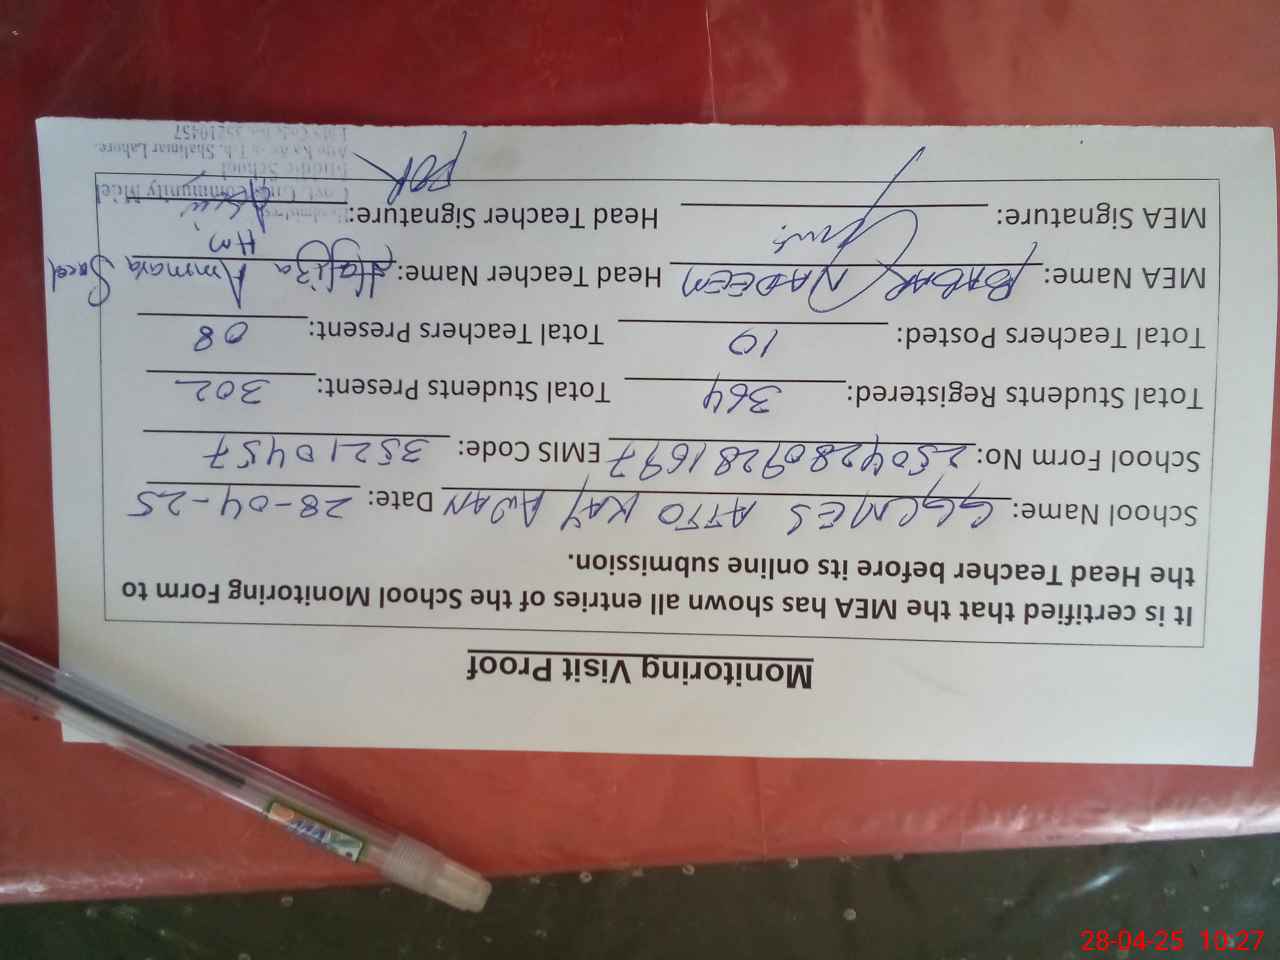 Monitoring Visit Proof
It is certified that the MEA has shown all entries of the School Monitoring Form to
the Head Teacher before its online submission.
School Name: GGCMES ATTO KAY AWAN Date: 28-04-25
School Form No: 25042809281697 EMIS Code: 35210457
Total Students Registered: 364 Total Students Present: 302
Total Teachers Posted: 10 Total Teachers Present: 08
MEA Name: BABAR NADEEM Head Teacher Name: Hafiza Ammara Saeed
MEA Signature: Head Teacher Signature:
FOR
Govt. Community Model
School
Shalimar Lahore.
35210457
28-04-25 10:27